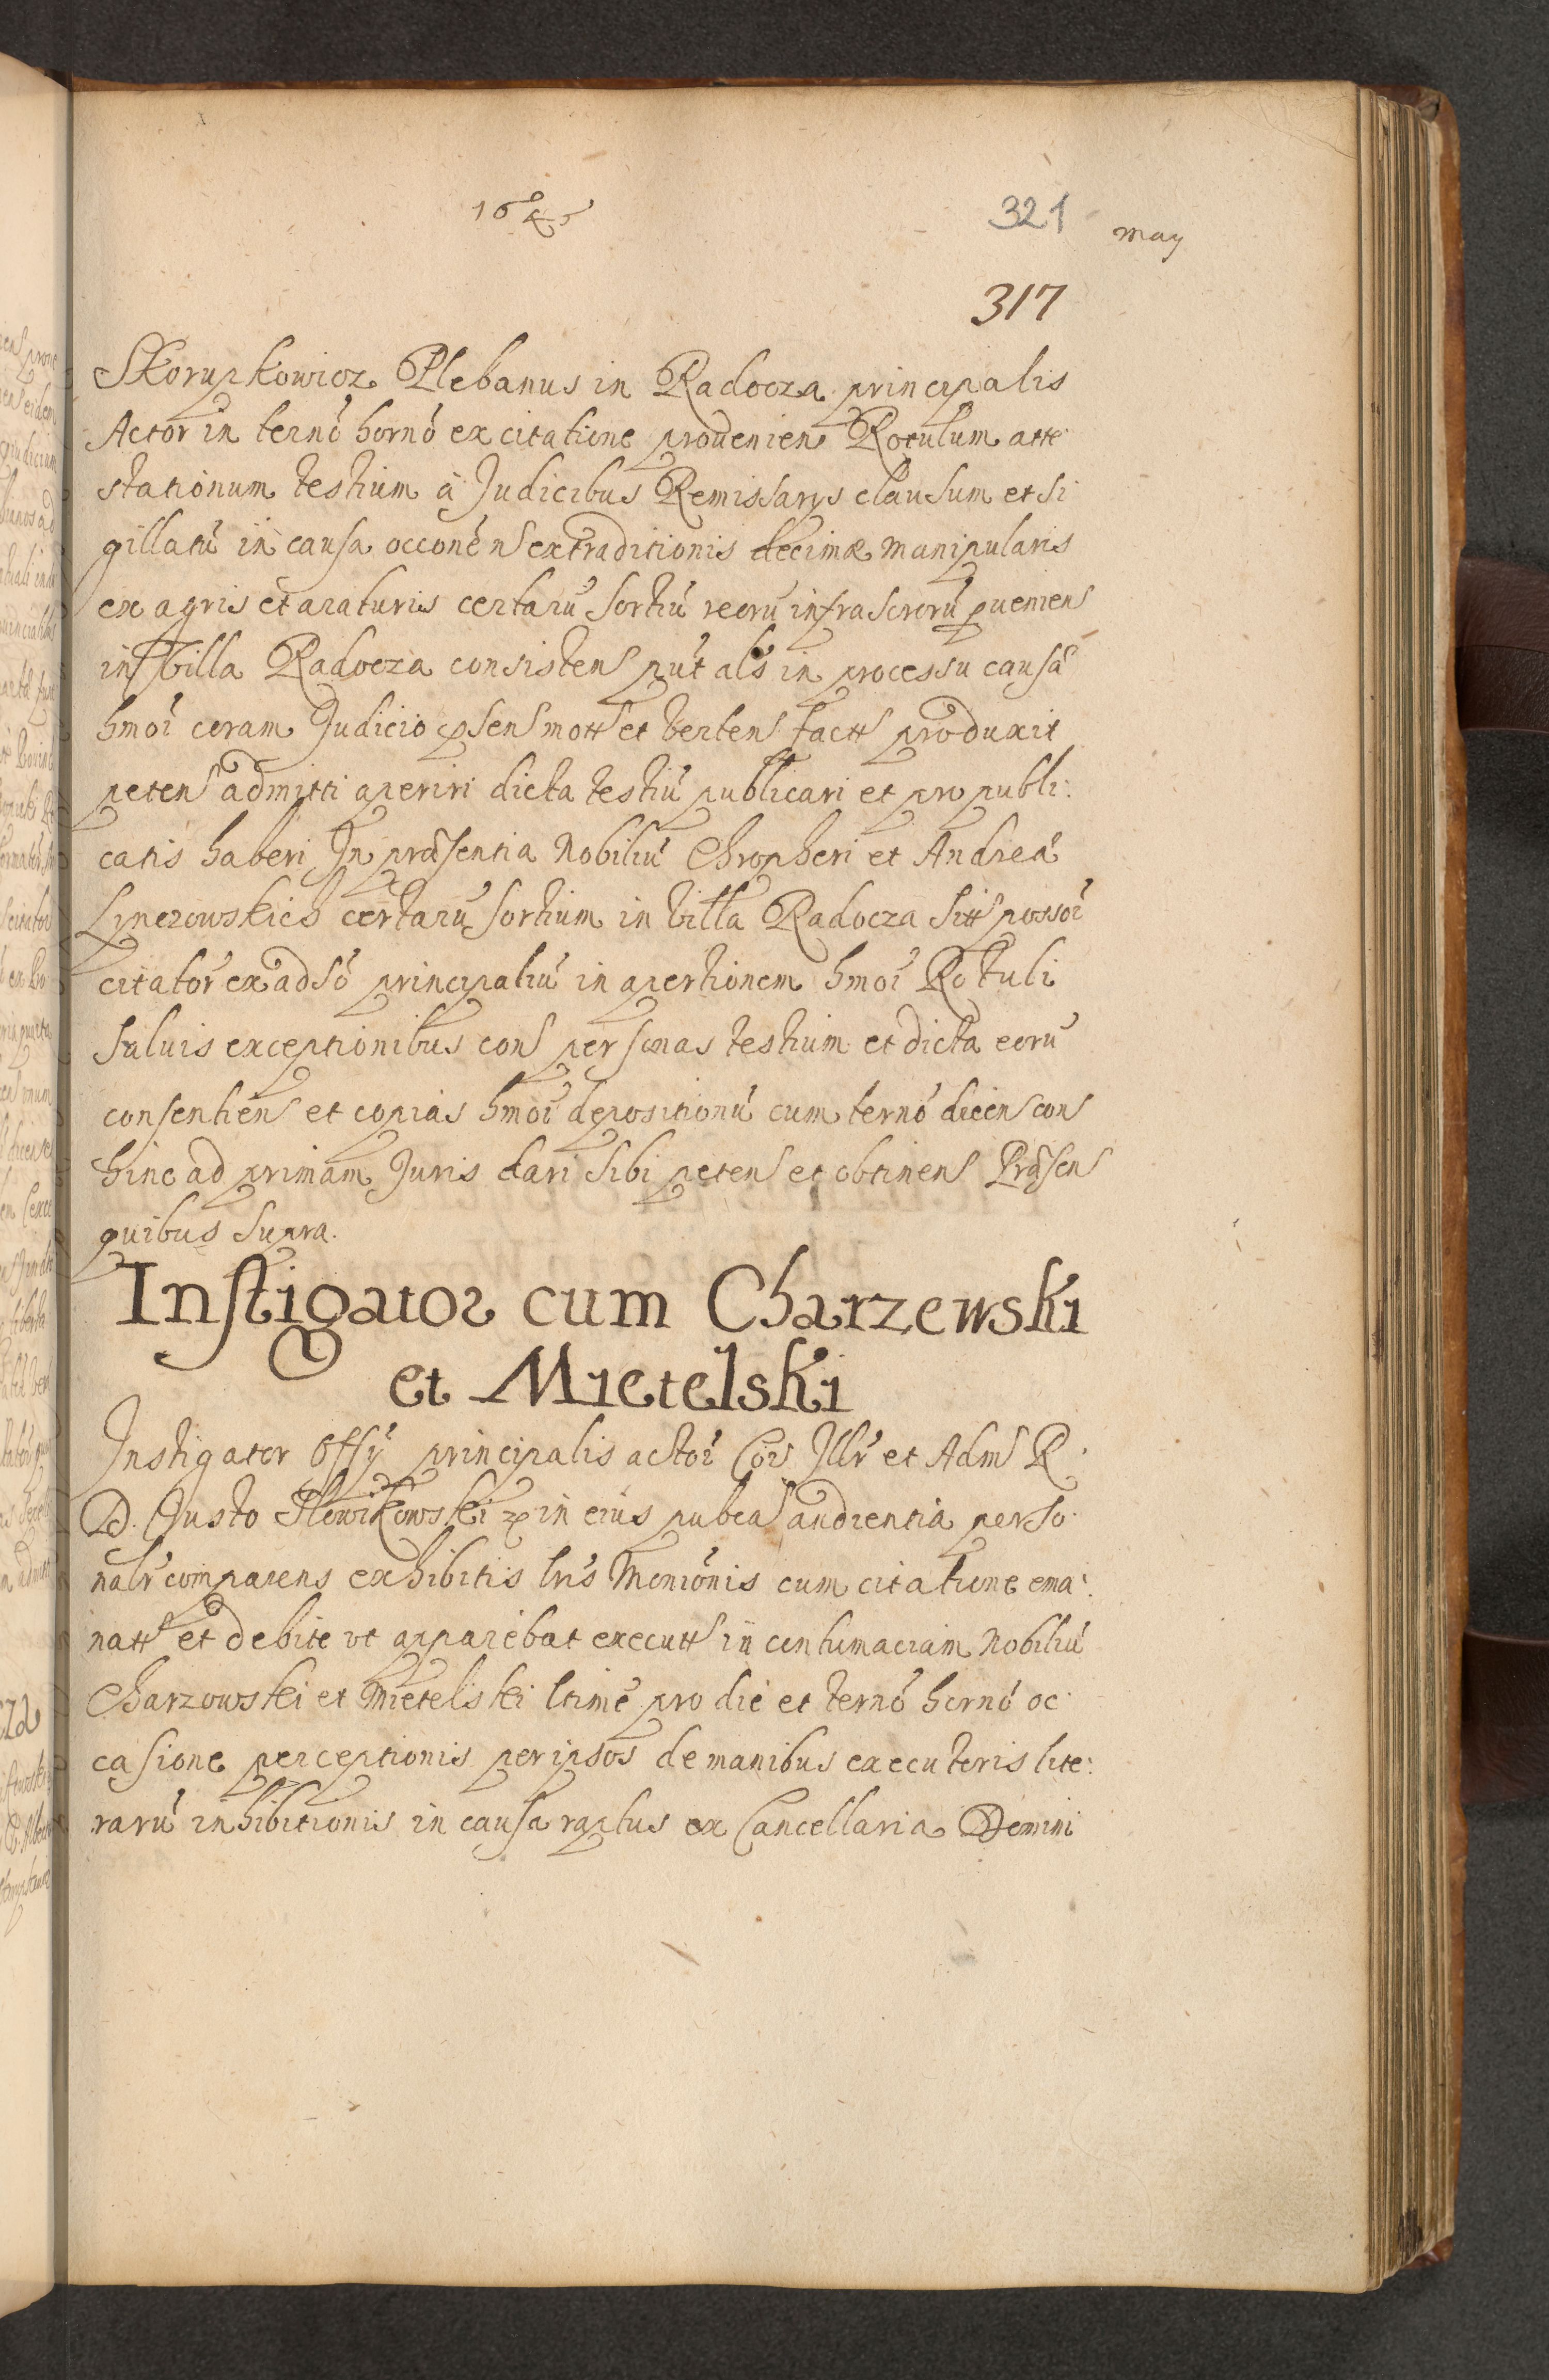 1645
321
may
317
Skorupkowicz Plebanus in Radocza principalis
Actor in termō hornō ex citatione provenien Rotulum atte
stationum testium à Judicibus Remissarys clausum et si
gillatū in causa occonē nſ extraditionis decimæ manipularis
ex agris et araturis certarū sortiū reorū infrascrorū pueniens
in Villa Radocza consistenſ put als in processu causæ
hmoi coram Judicio psenſ mott et verten factſ produxit
petenſ admitti aperiri dicta testiū publicari et pro publi:
catis haberi In præsentia Nobiliū Chropheri et Andreæ
certarū sortium in villa Radocza sitt possoi
citator ex adsō principaliū in apertionem hmoi Rotuli
saluis exceptionibus conſ personas testium et dicta eorū
consentienſ et copias hmoi depositionū cum termō dicen conſ
hinc ad primam Juris dari sibi petenſ et obtinenſ Præsen
quibus supra.
Instigator cum Charzewski
et Mietelski
Instigator Offÿ principalis actoi Coī Illr et Adm R.
D. Justo Słowikowski in eius pubca audientia perso
nalr comparens exhibitis lris Monionis cum citatione ema:
natt et debite ut apparebat executt in contumaciam Nobiliū
Charzowski et Mietelski ltime pro die et termō hornō oc
casione perceptionis per ipsos de manibus executoris lite:
rarū inhibitionis in causa raptus ex Cancellaria Domini